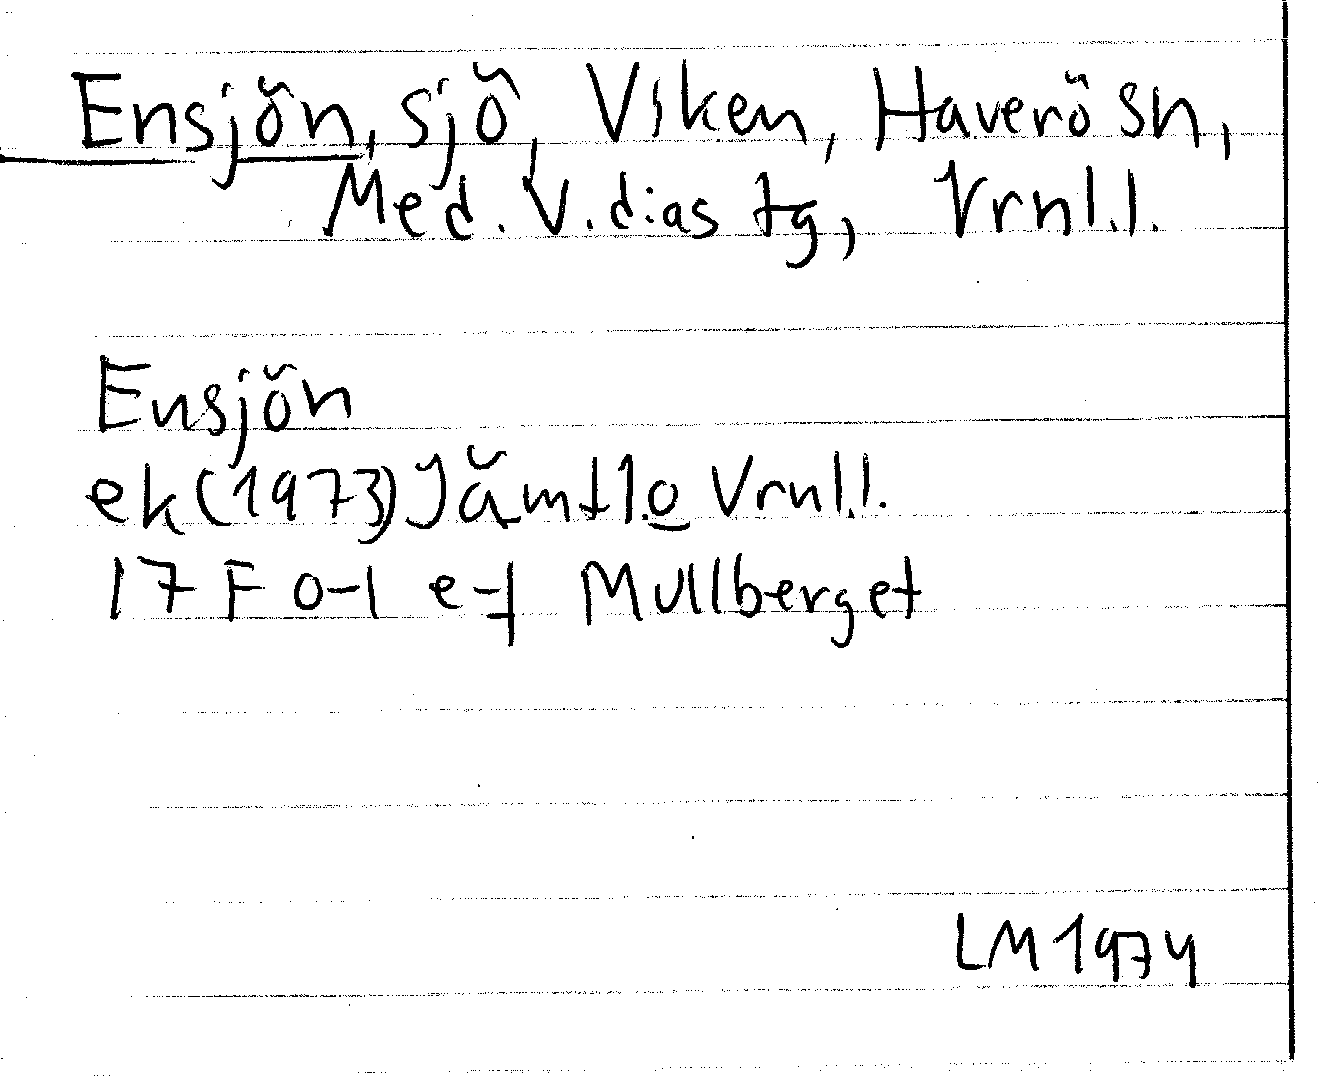 Ensjön, sjö, Viken, Haverö sn,
Med. V. dias tg, Vrnl.l.
Ensjön
ek (1973) Jämtl.o Vrnl.l.
17 F o-l e-f Mullberget
LM 1974